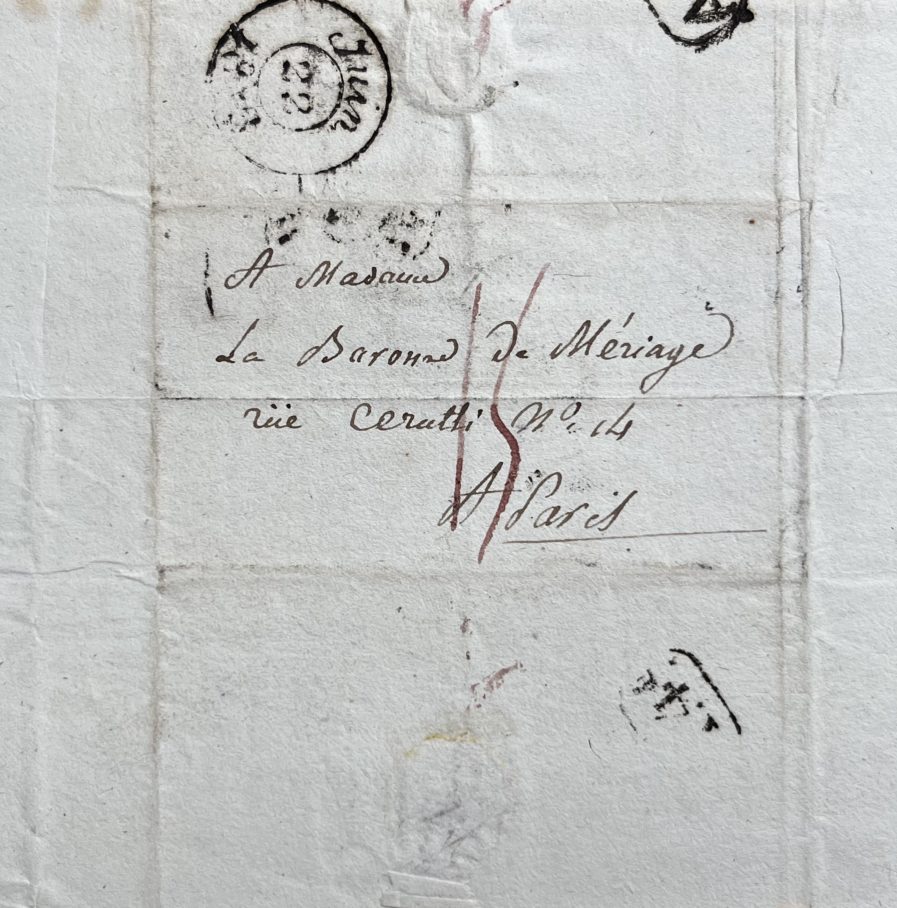 Juin
22
A Madame
La Baronne De Mériage
rüe Cerutti N° 14
A Paris
15